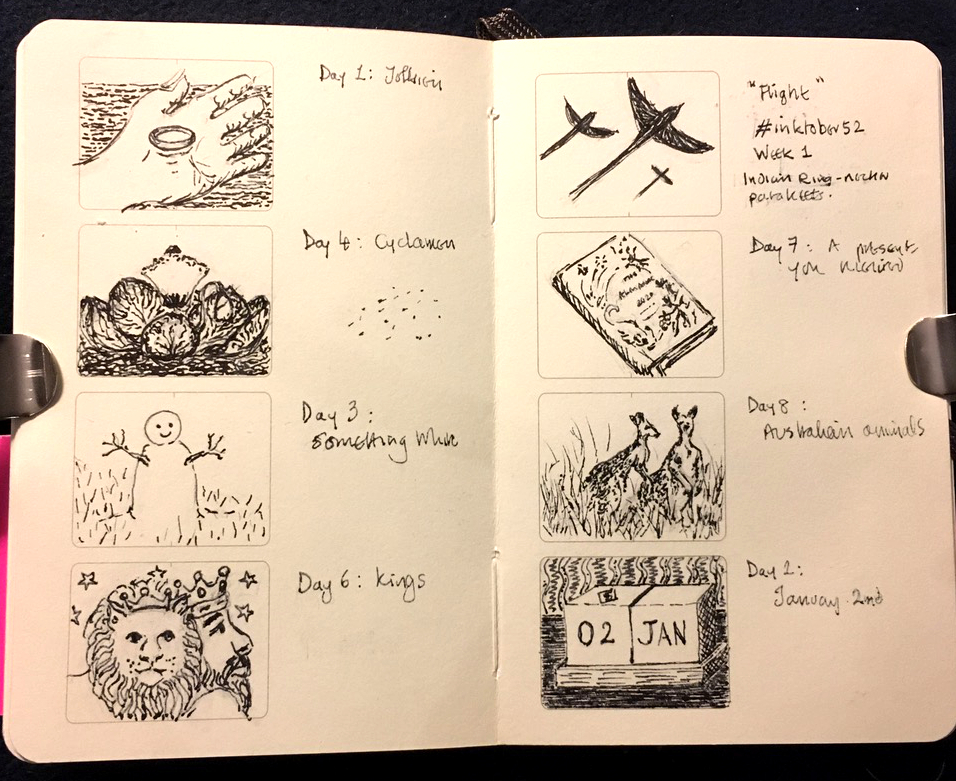 Day 1: Tolkien
Day 4: Cyclamen
Day 3:
Something White
Day 6: Kings
"Flight"
#inktober52
Week 1
Indian Ring-necked
parakeets.
Day 7: A present
you received
Day 8:
Australian animals
Day 2:
January 2nd
02 JAN